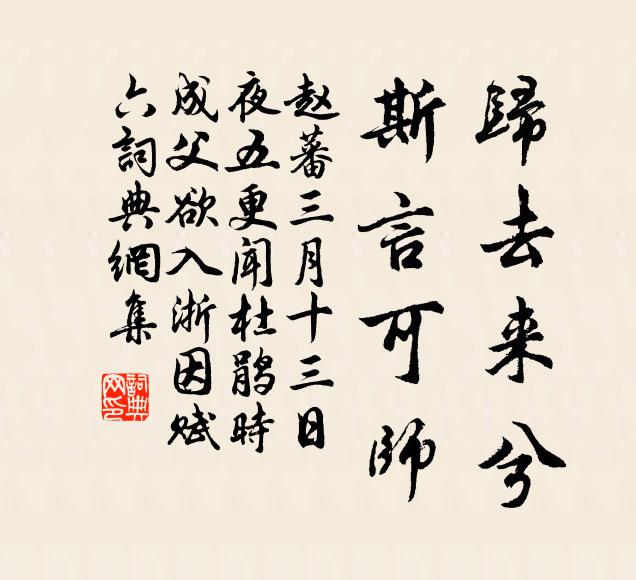 歸去来兮
斯言可師
赵蕃三月十三日
夜五更聞杜鹃時
成父欲入浙因赋
六詞典網集
詞典网印